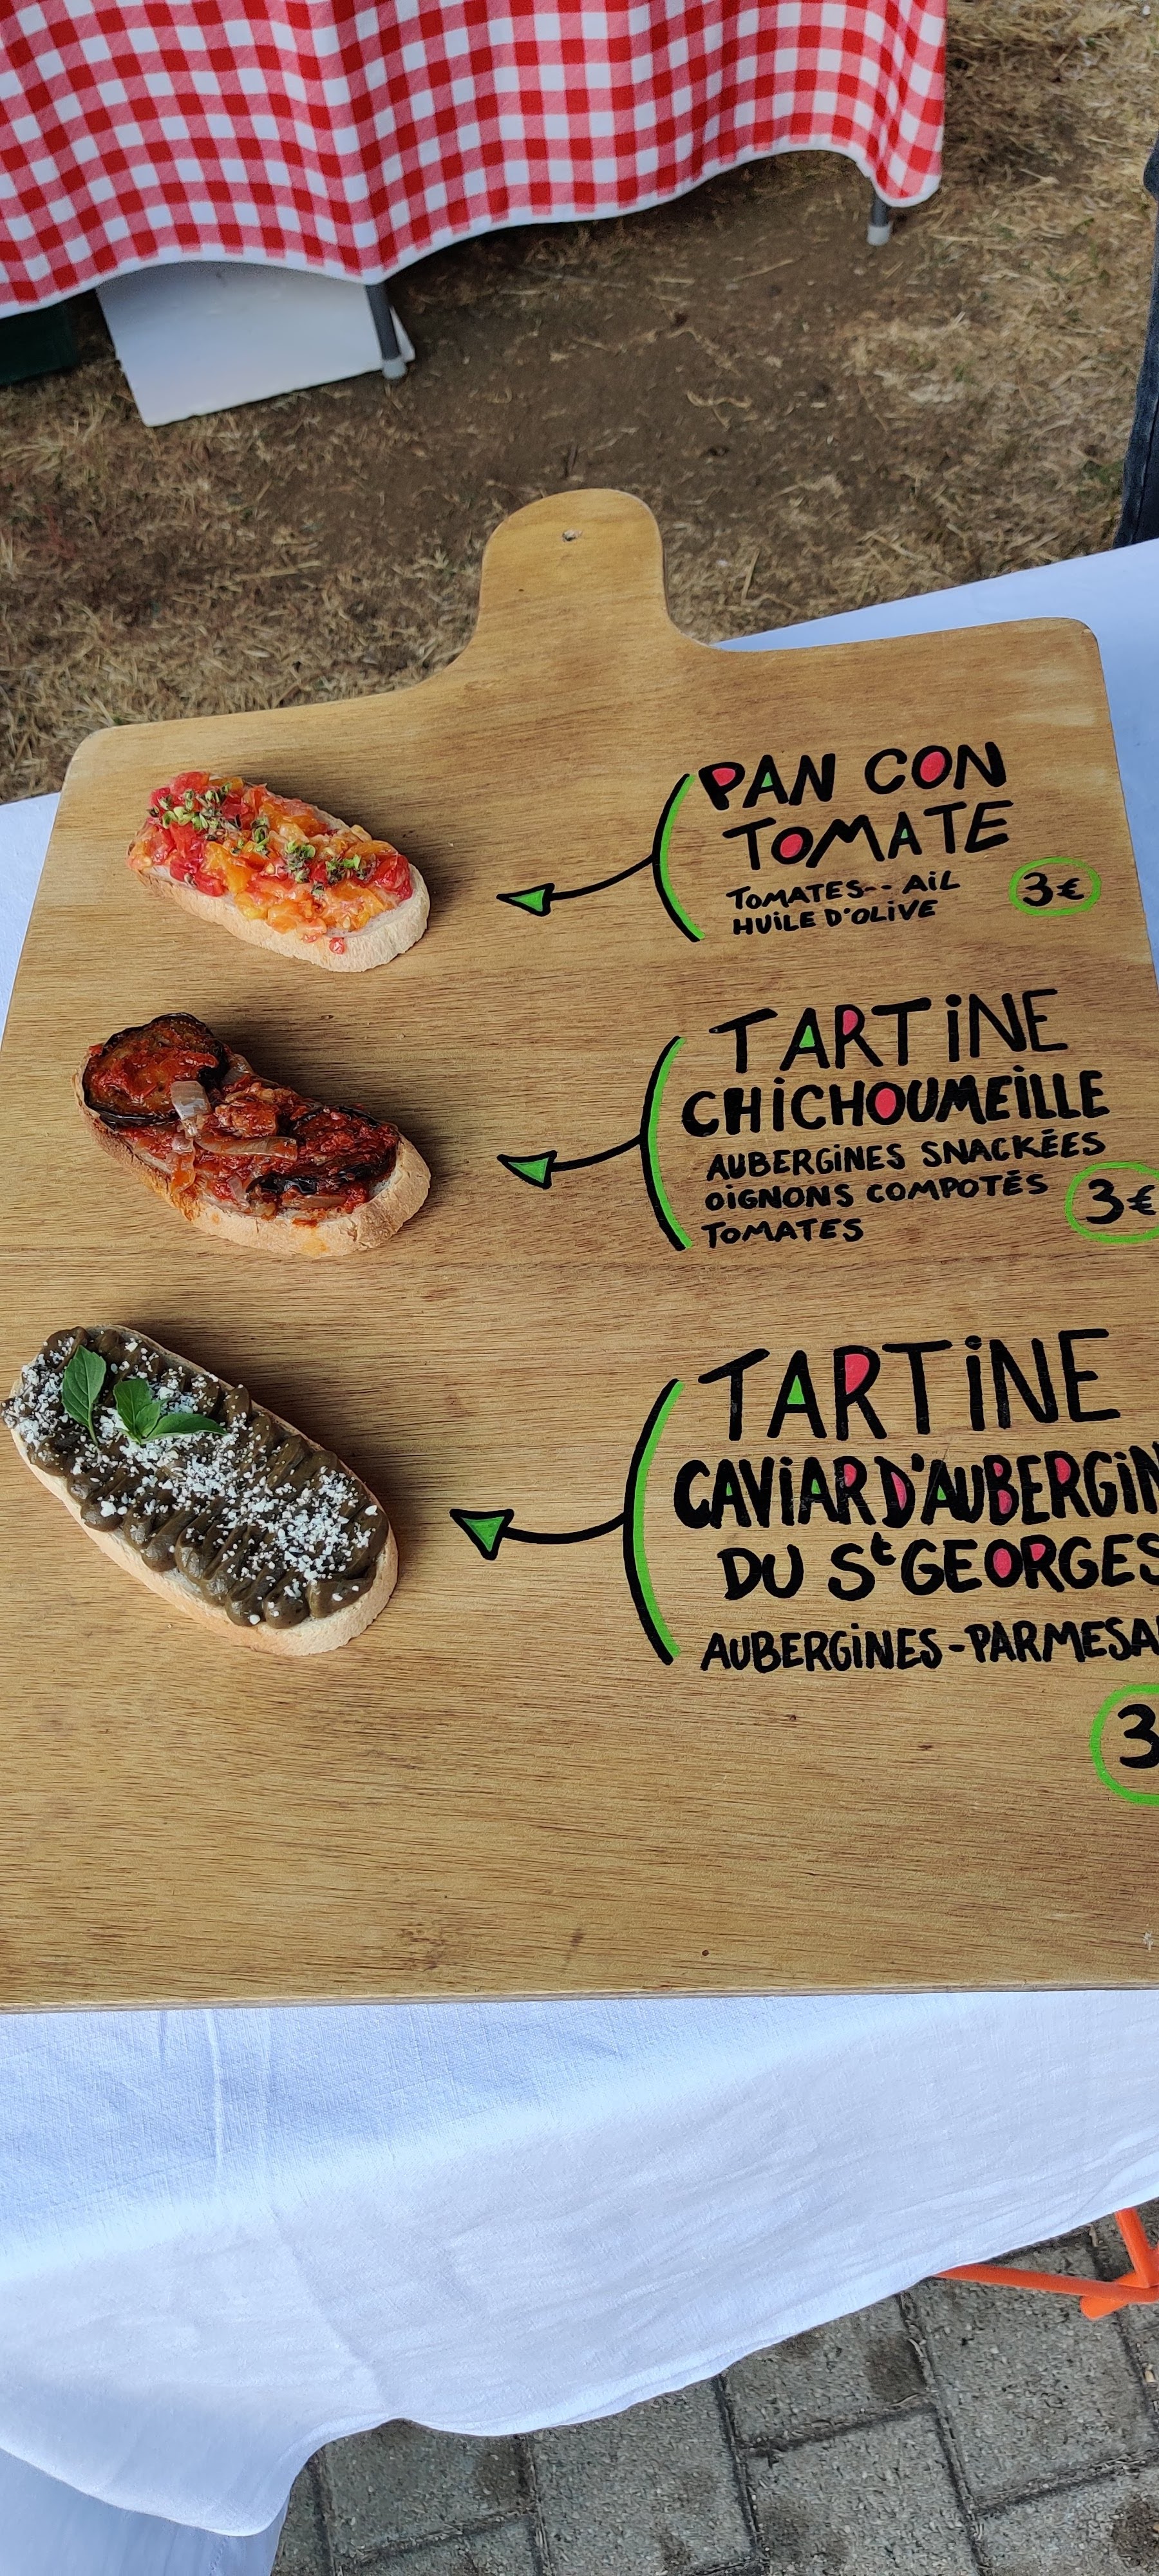 PAN CON
TOMATE
TOMATES-- AiL
HUiLE D'OLiVE
3€
TARTiNE
CHiCHOUMEiLLE
AUBERGiNES SNACKÉES
OiGNONS COMPOTÉS
TOMATES
3€
TARTiNE
CAViAR D'AUBERGiN
DU St GEORGES
AUBERGiNES-PARMESA
3